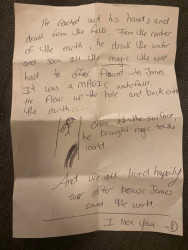 He reached out his hands and
drank from the falls. From the center
of the earth, he drank the water
and soon all the magic the world
had to offer flowed into James
It was a MAGIC waterfall
He flew up the hole and back onto
the earth...
Once at the surface,
he brought magic to the
world.
And we all lived happily
ever after because James
saved the world
I love you